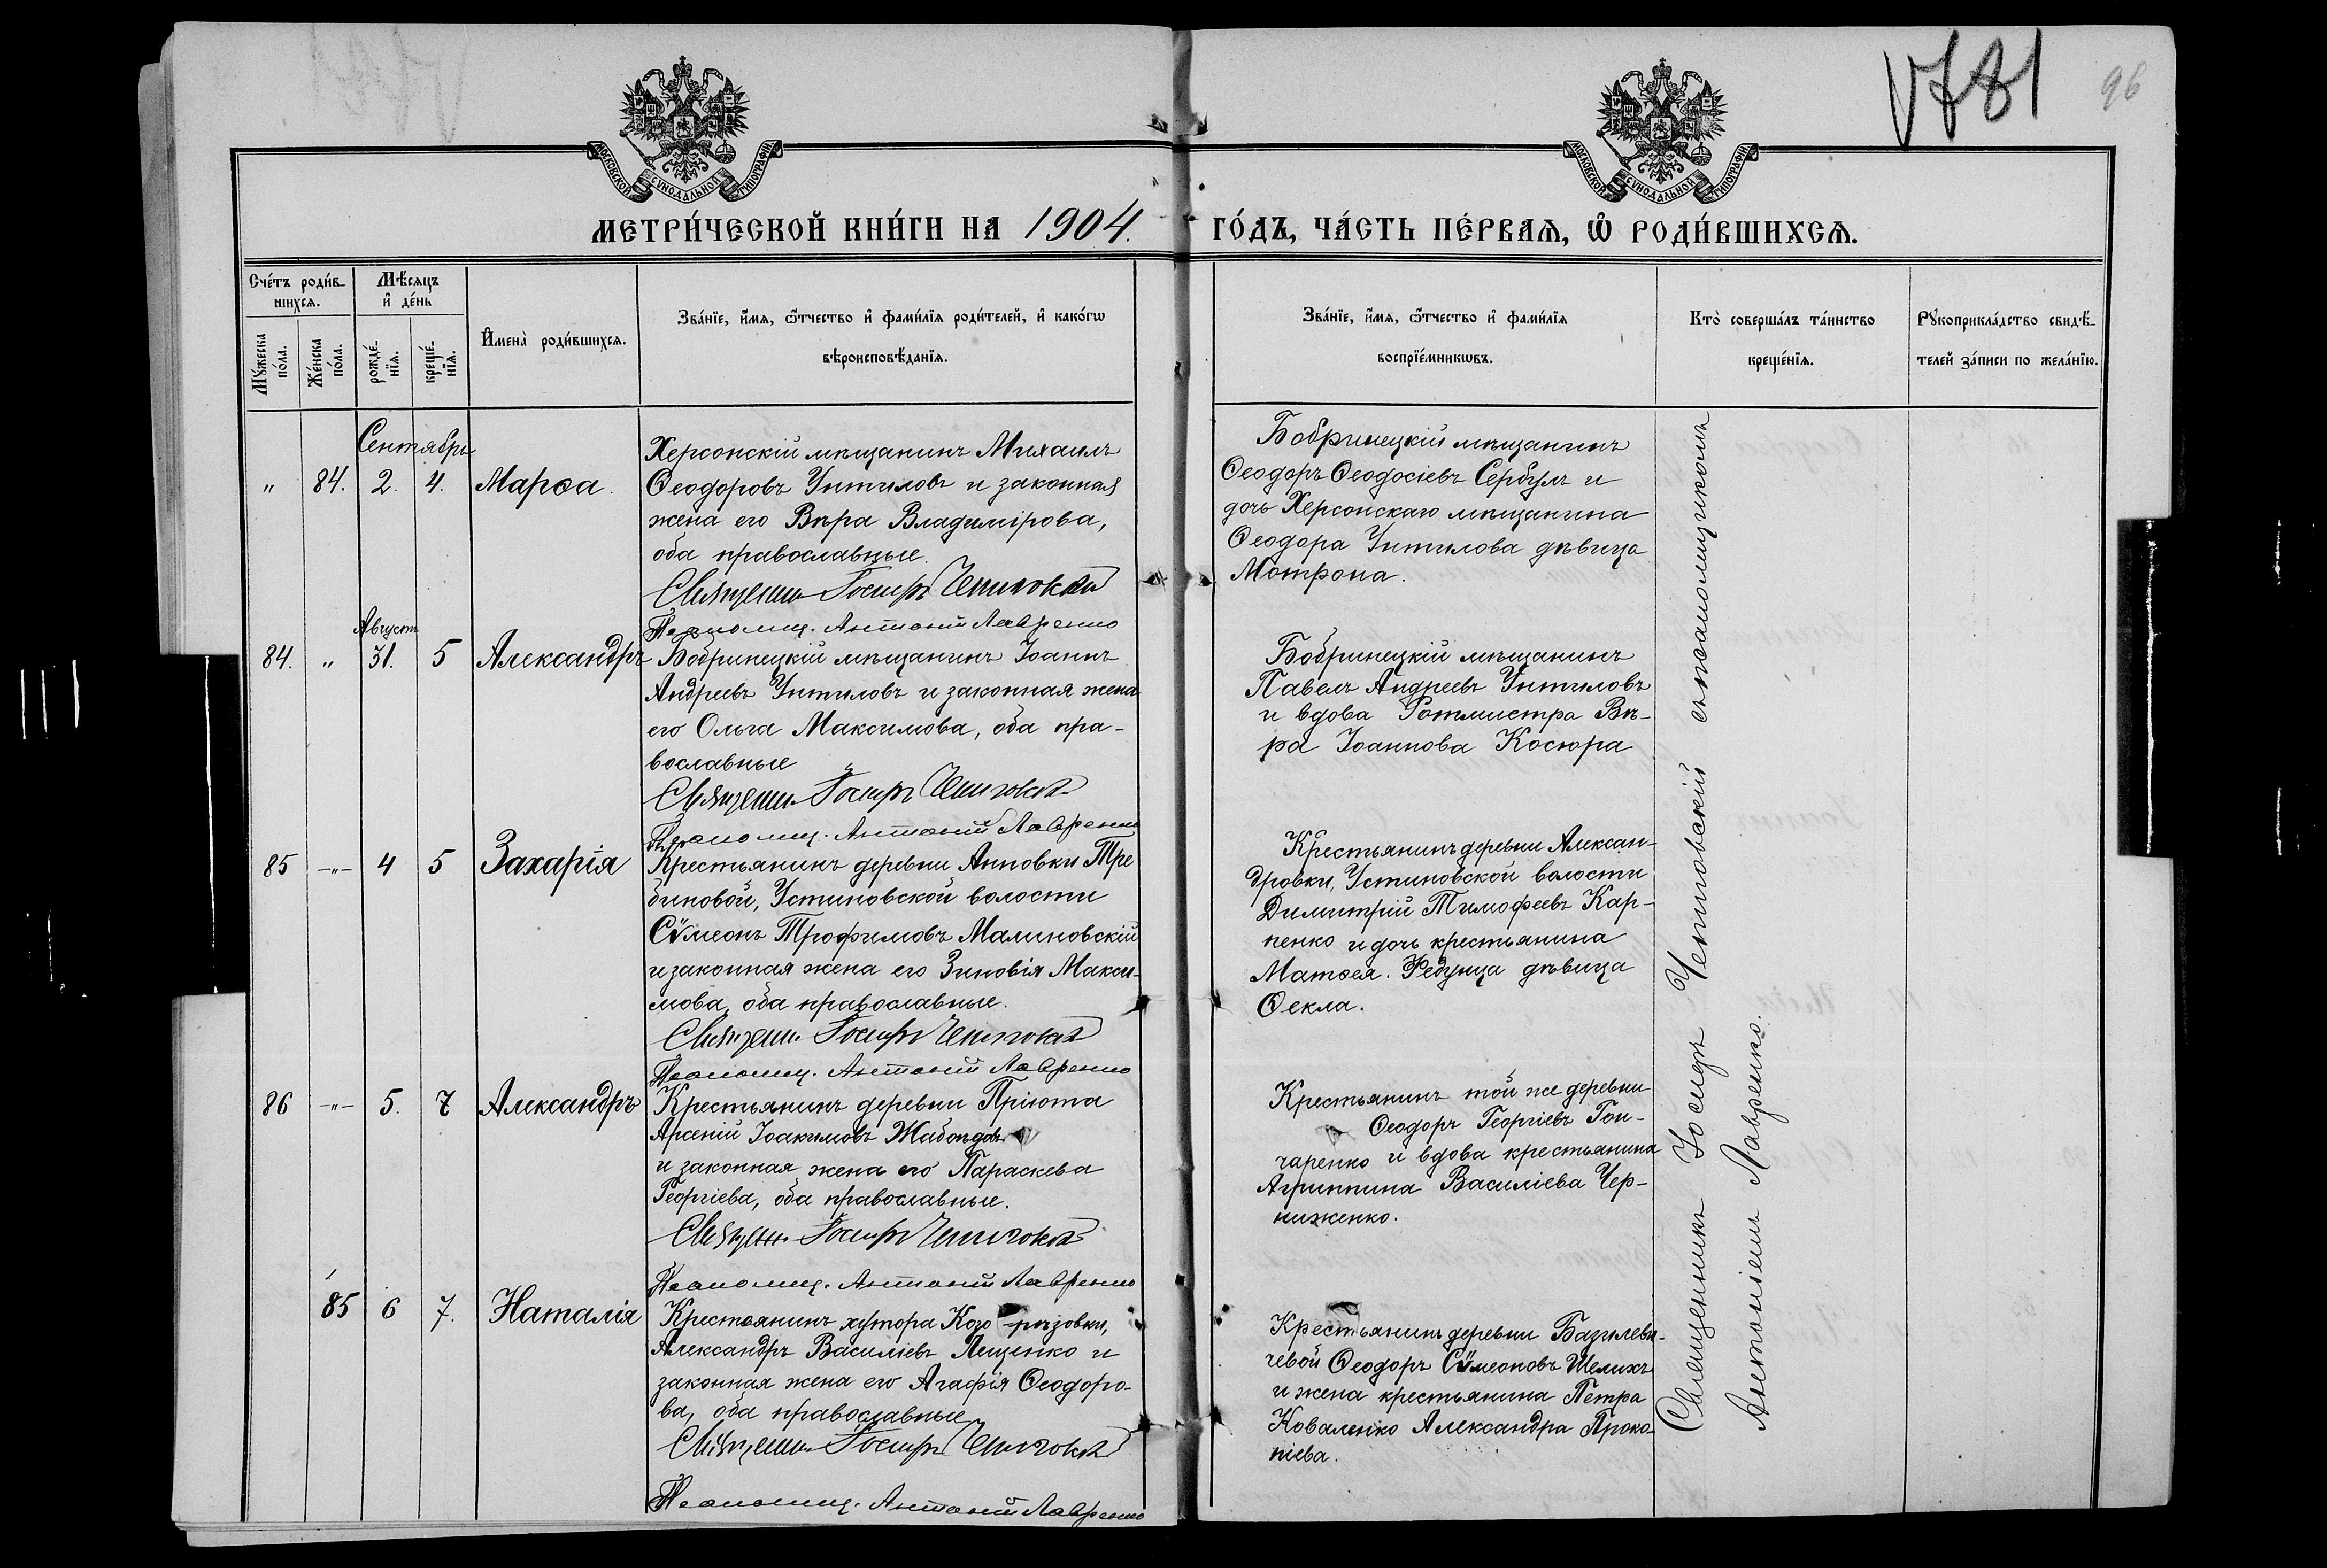 1781
96
МОСКОВСКОЙ СѴНОДАЛЬНОЙ ТИПОГРАФІИ
МОСКОВСКОЙ СѴНОДАЛЬНОЙ ТИПОГРАФІИ
МЕТРИ́ЧЕСКОЙ КНИ́ГИ НА 1904.
ГО́ДЪ, ЧА́СТЬ ПЕ́РВАѦ, Ѡ҆ РОДИ́ВШИХСѦ.
Сче́тъ роди́в-
шихсѧ.
Мꙋ́жеска
по́ла.
Же́нска
по́ла.
Мѣ́сѧцъ
и҆ де́нь
рожде́-
нїѧ.
креще́-
нїѧ.
И҆мена̀ роди́вшихсѧ.
Зва́нїе, и҆́мѧ, ѻ҆́тчество и҆ фами́лїѧ роди́телей, и҆ како́гѡ
вѣроисповѣ́данїѧ.
Зва́нїе, и҆́мѧ, ѻ҆́тчество и҆ фами́лїѧ
воспрїе́мникѡвъ.
Кто̀ соверша́лъ та́инство
креще́нїѧ.
Рꙋкоприкла́дство свидѣ́-
телей за́писи по жела́нїю.
Сентябрь
" 84. 2. 4. Марѳа.
Херсонскій мѣщанинъ Михаилъ
Ѳеодоровъ Унтиловъ и законная
жена его Вѣра Владимірова,
оба православные.
Священн. Іосифъ Чепиговскій
Псаломщ. Антоній Лавренко
Бобринецкій мѣщанинъ
Ѳеодоръ Ѳеодосіевъ Сербулъ и
дочь Херсонскаго мѣщанина
Ѳеодора Унтилова дѣвица
Мотрона.
Августъ
84. " 31. 5 Александръ
Бобринецкій мѣщанинъ Іоаннъ
Андреевъ Унтиловъ и законная жена
его Ольга Максимова, оба пра-
вославные
Священн. Іосифъ Чепиговскій
Псаломщ. Антоній Лавренко
Бобринецкій мѣщанинъ
Павелъ Андреевъ Унтиловъ
и вдова Ротмистра Вѣ-
ра Іоаннова Косюра
85 -"- 4 5 Захарія
Крестьянинъ деревни Анновки Тре
биновой, Устиновской волости
Сѵмеонъ Трофимовъ Малиновскій
и законная жена его Зиновія Макси-
мова, оба православные.
Священн. Іосифъ Чепиговскій
Псаломщ. Антоній Лавренко
Крестьянинъ деревни Алексан-
дровки, Устиновской волости
Димитрій Тимофеевъ Кар-
пенко и дочь крестьянина
Матѳея. Редунца дѣвица
Ѳекла.
86 -"- 5. 7 Александръ
Крестьянинъ деревни Пріюта
Арсеній Іоакимовъ
и законная жена его Параскева
Георгіева, оба православные.
Священн. Іосифъ Чепиговскій
Псаломщ. Антоній Лавренко
Крестьянинъ той же деревни
Ѳеодоръ Георгіевъ Гон-
чаренко и вдова крестьянина
Агриппина Василіева Чер-
ниженко.
85 6 7. Наталія
Крестьянинъ хутора Козо-рѣзовки,
Александръ Василіевъ Лещенко и
законная жена его Агафія Ѳеодоро-
ва, оба православные
Священн. Іосифъ Чепиговскій
Псаломщ. Антоній Лавренко
Крестьянинъ деревни Базилеви-
чевой Ѳеодоръ Сѵмеоновъ Шелихъ
и жена крестьянина Петра
Коваленко Александра Проко-
піева.
Священникъ Іосифъ Чепиговскій съ псаломщикомъ
Антоніемъ Лавренко.